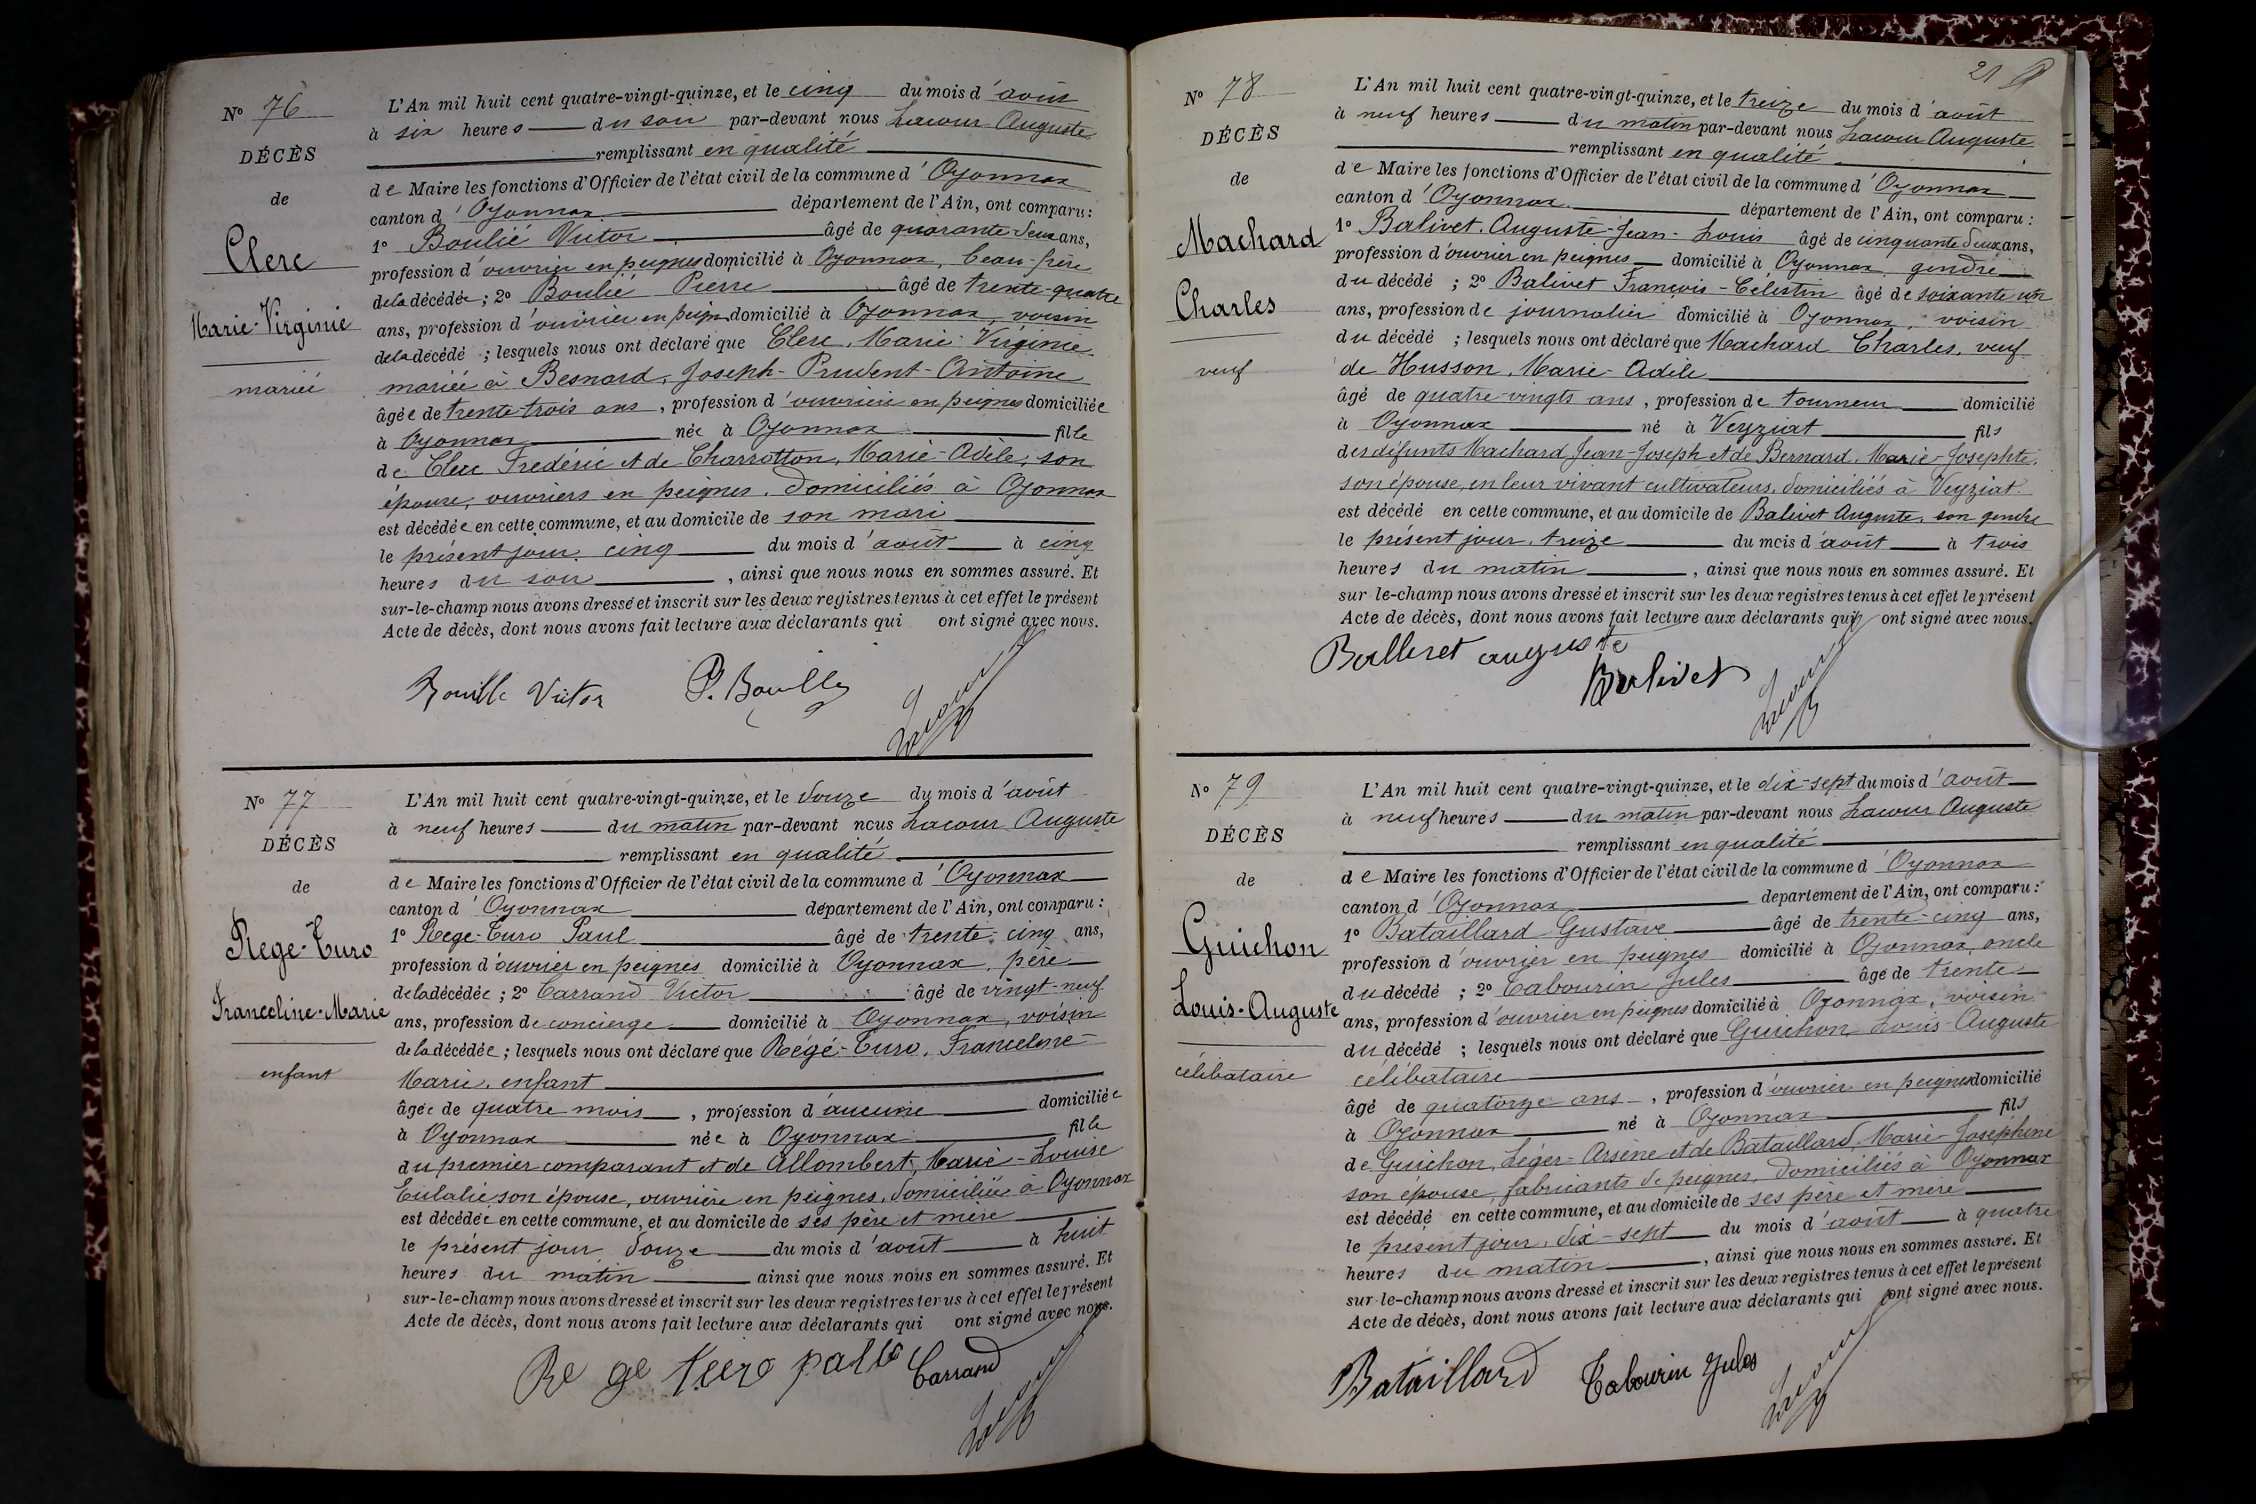 N° 76
DÉCÈS
de
Clerc
Marie-Virginie
mariée
L'An mil huit cent quatre-vingt-quinze, et le cinq du mois d'août
à six heures du soir par-devant nous Lacour Auguste
remplissant en qualité
de Maire les fonctions d'Officier de l'état civil de la commune d'Oyonnax
canton d'Oyonnax département de l'Ain, ont comparu :
1° Boulié Victor âgé de quarante deux ans,
profession d'ouvrier en peignes domicilié à Oyonnax, beau-frère
de la décédée ; 2° Boulié Pierre âgé de trente-quatre
ans, profession d'ouvrier en peignes domicilié à Oyonnax, voisin
de la décédé ; lesquels nous ont déclaré que Clerc, Marie-Virginie
mariée à Besnard, Joseph-Prudent-Antoine
âgée de trente trois ans, profession d'ouvrière en peignes domiciliée
à Oyonnax née à Oyonnax fille
de Clerc Frédéric et de Charrotton, Marie-Adèle, son
épouse, ouvriers en peignes, domiciliés à Oyonnax
est décédée en cette commune, et au domicile de son mari
le présent jour cinq du mois d'août à cinq
heures du soir, ainsi que nous nous en sommes assuré. Et
sur-le-champ nous avons dressé et inscrit sur les deux registres tenus à cet effet le présent
Acte de décès, dont nous avons fait lecture aux déclarants qui ont signé avec nous.
Bouille Victor P. Bouilly Lacour
N° 77
DÉCÈS
de
Rege-Turo
Franceline-Marie
enfant
L'An mil huit cent quatre-vingt-quinze, et le douze du mois d'août
à neuf heures du matin par-devant nous Lacour Auguste
remplissant en qualité
de Maire les fonctions d'Officier de l'état civil de la commune d'Oyonnax
canton d'Oyonnax département de l'Ain, ont comparu :
1° Rege-Turo Paul âgé de trente-cinq ans,
profession d'ouvrier en peignes domicilié à Oyonnax, père
de la décédée ; 2° Carrand Victor âgé de vingt-neuf
ans, profession de concierge domicilié à Oyonnax, voisin
de la décédée ; lesquels nous ont déclaré que Régé-Turo, Franceline
Marie, enfant
âgée de quatre mois, profession d'aucune domiciliée
à Oyonnax née à Oyonnax fille
du premier comparant et de Allombert, Marie-Louise
Eulalie son épouse, ouvrière en peignes, domiciliée à Oyonnax
est décédée en cette commune, et au domicile de ses père et mère
le présent jour douze du mois d'août à huit
heures du matin ainsi que nous nous en sommes assuré. Et
sur-le-champ nous avons dressé et inscrit sur les deux registres tenus à cet effet le présent
Acte de décès, dont nous avons fait lecture aux déclarants qui ont signé avec nous.
Carrand Lacour
21
N° 78
DÉCÈS
de
Machard
Charles
veuf
L'An mil huit cent quatre-vingt-quinze, et le treize du mois d'août
à neuf heures du matin par-devant nous Lacour Auguste
remplissant en qualité
de Maire les fonctions d'Officier de l'état civil de la commune d'Oyonnax
canton d'Oyonnax département de l'Ain, ont comparu :
1° Balivet, Auguste-Jean-Louis âgé de cinquante deux ans,
profession d'ouvrier en peignes domicilié à Oyonnax, gendre
du décédé ; 2° Balivet François-Célestin âgé de soixante un
ans, profession de journalier domicilié à Oyonnax, voisin
du décédé ; lesquels nous ont déclaré que Machard Charles, veuf
de Husson, Marie-Adèle
âgé de quatre-vingts ans, profession de tourneur domicilié
à Oyonnax né à Veyziat fils
des défunts Machard Jean-Joseph et de Bernard, Marie-Josephte,
son épouse, en leur vivant cultivateurs, domiciliés à Veyziat.
est décédé en cette commune, et au domicile de Balivet Auguste, son gendre
le présent jour, treize du mois d'août à trois
heures du matin, ainsi que nous nous en sommes assuré. Et
sur le-champ nous avons dressé et inscrit sur les deux registres tenus à cet effet le présent
Acte de décès, dont nous avons fait lecture aux déclarants qui ont signé avec nous.
Balliret auguste Balivet Lacour
N° 79
DÉCÈS
de
Guichon
Louis-Auguste
célibataire
L'An mil huit cent quatre-vingt-quinze, et le dix-sept du mois d'août
à neuf heures du matin par-devant nous Lacour Auguste
remplissant en qualité
de Maire les fonctions d'Officier de l'état civil de la commune d'Oyonnax
canton d'Oyonnax departement de l'Ain, ont comparu :
1° Bataillard Gustave âgé de trente-cinq ans,
profession d'ouvrier en peignes domicilié à Oyonnax, oncle
du décédé ; 2° Tabourin Jules âgé de trente
ans, profession d'ouvrier en peignes domicilié à Oyonnax, voisin
du décédé ; lesquels nous ont déclaré que Guichon, Louis-Auguste
célibataire
âgé de quatorze ans, profession d'ouvrier en peignes domicilié
à Oyonnax né à Oyonnax fils
de Guichon, Léger-Arsène et de Bataillard, Marie-Joséphine
son épouse, fabricants de peignes, domiciliés à Oyonnax
est décédé en cette commune, et au domicile de ses père et mère
le présent jour, dix-sept du mois d'août à quatre
heures du matin, ainsi que nous nous en sommes assuré. Et
sur-le-champ nous avons dressé et inscrit sur les deux registres tenus à cet effet le présent
Acte de décès, dont nous avons fait lecture aux déclarants qui ont signé avec nous.
Bataillard Tabourin Jules Lacour